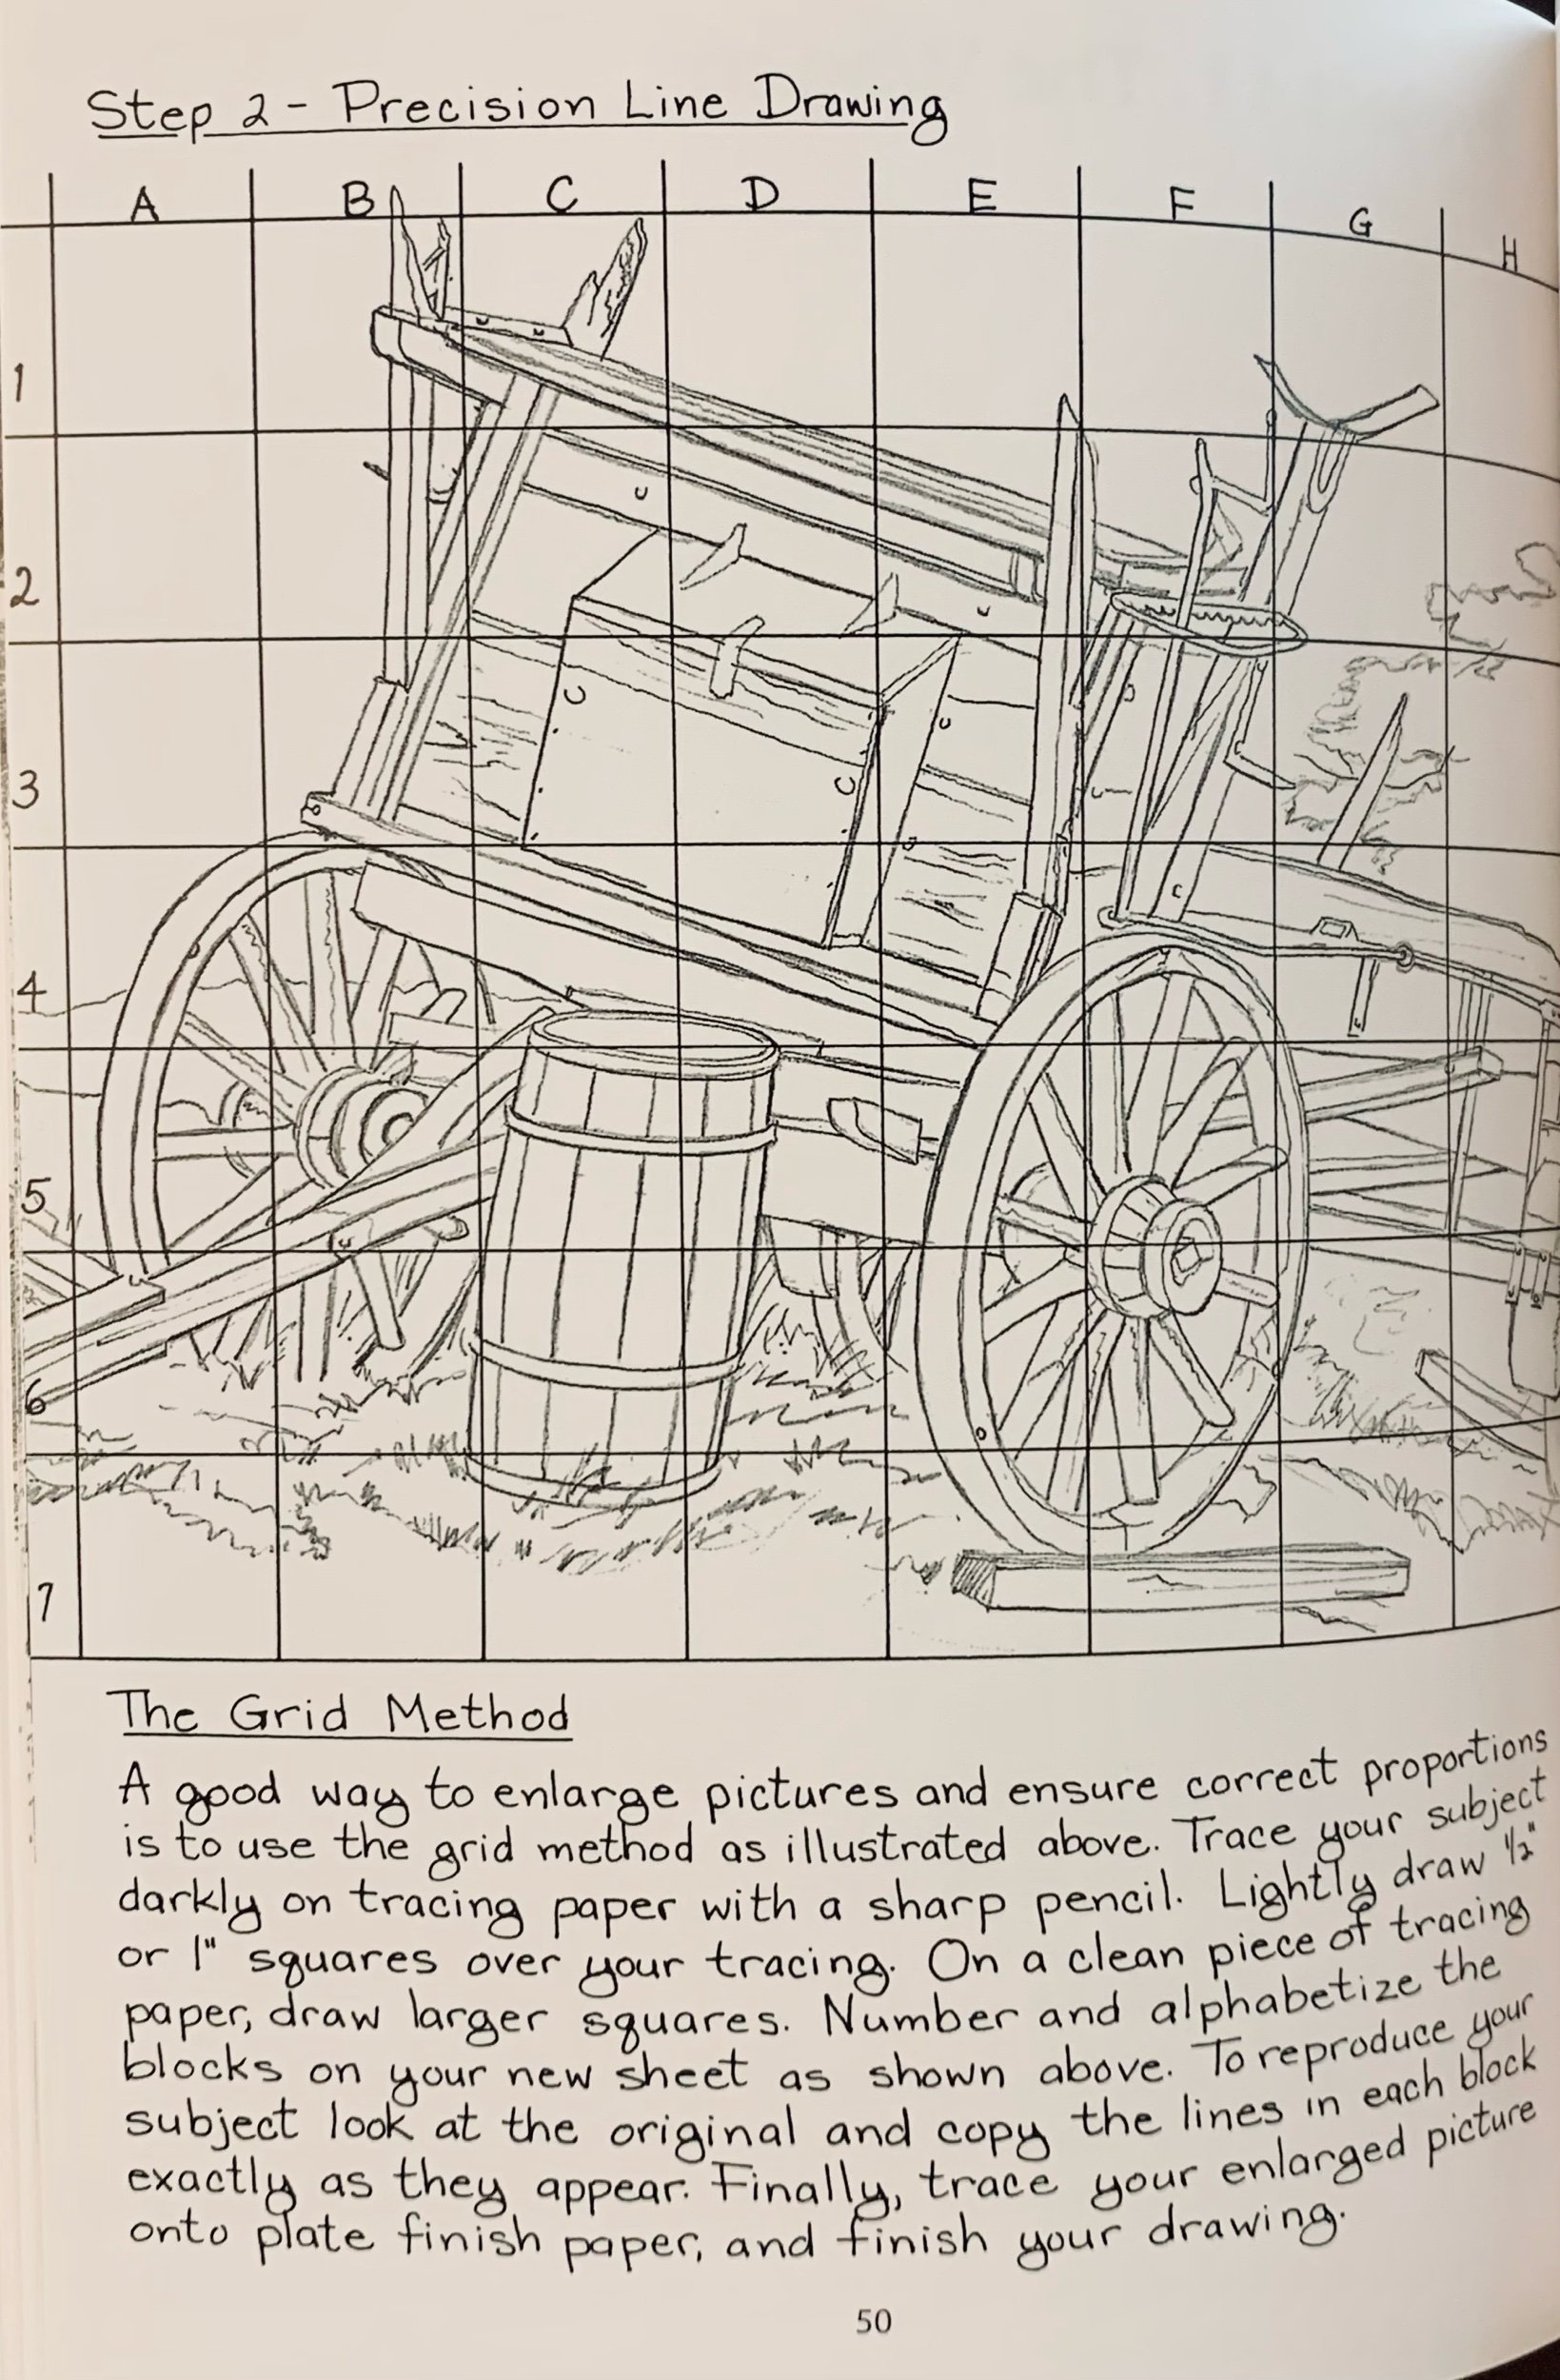 Step 2 - Precision Line Drawing
A B C D E F G H
1
2
3
4
5
6
7
The Grid Method
A good way to enlarge pictures and ensure correct proportions
is to use the grid method as illustrated above. Trace your subject
darkly on tracing paper with a sharp pencil. Lightly draw ½"
or 1" squares over your tracing. On a clean piece of tracing
paper, draw larger squares. Number and alphabetize the
blocks on your new sheet as shown above. To reproduce your
subject look at the original and copy the lines in each block
exactly as they appear. Finally, trace your enlarged picture
onto plate finish paper, and finish your drawing.
50